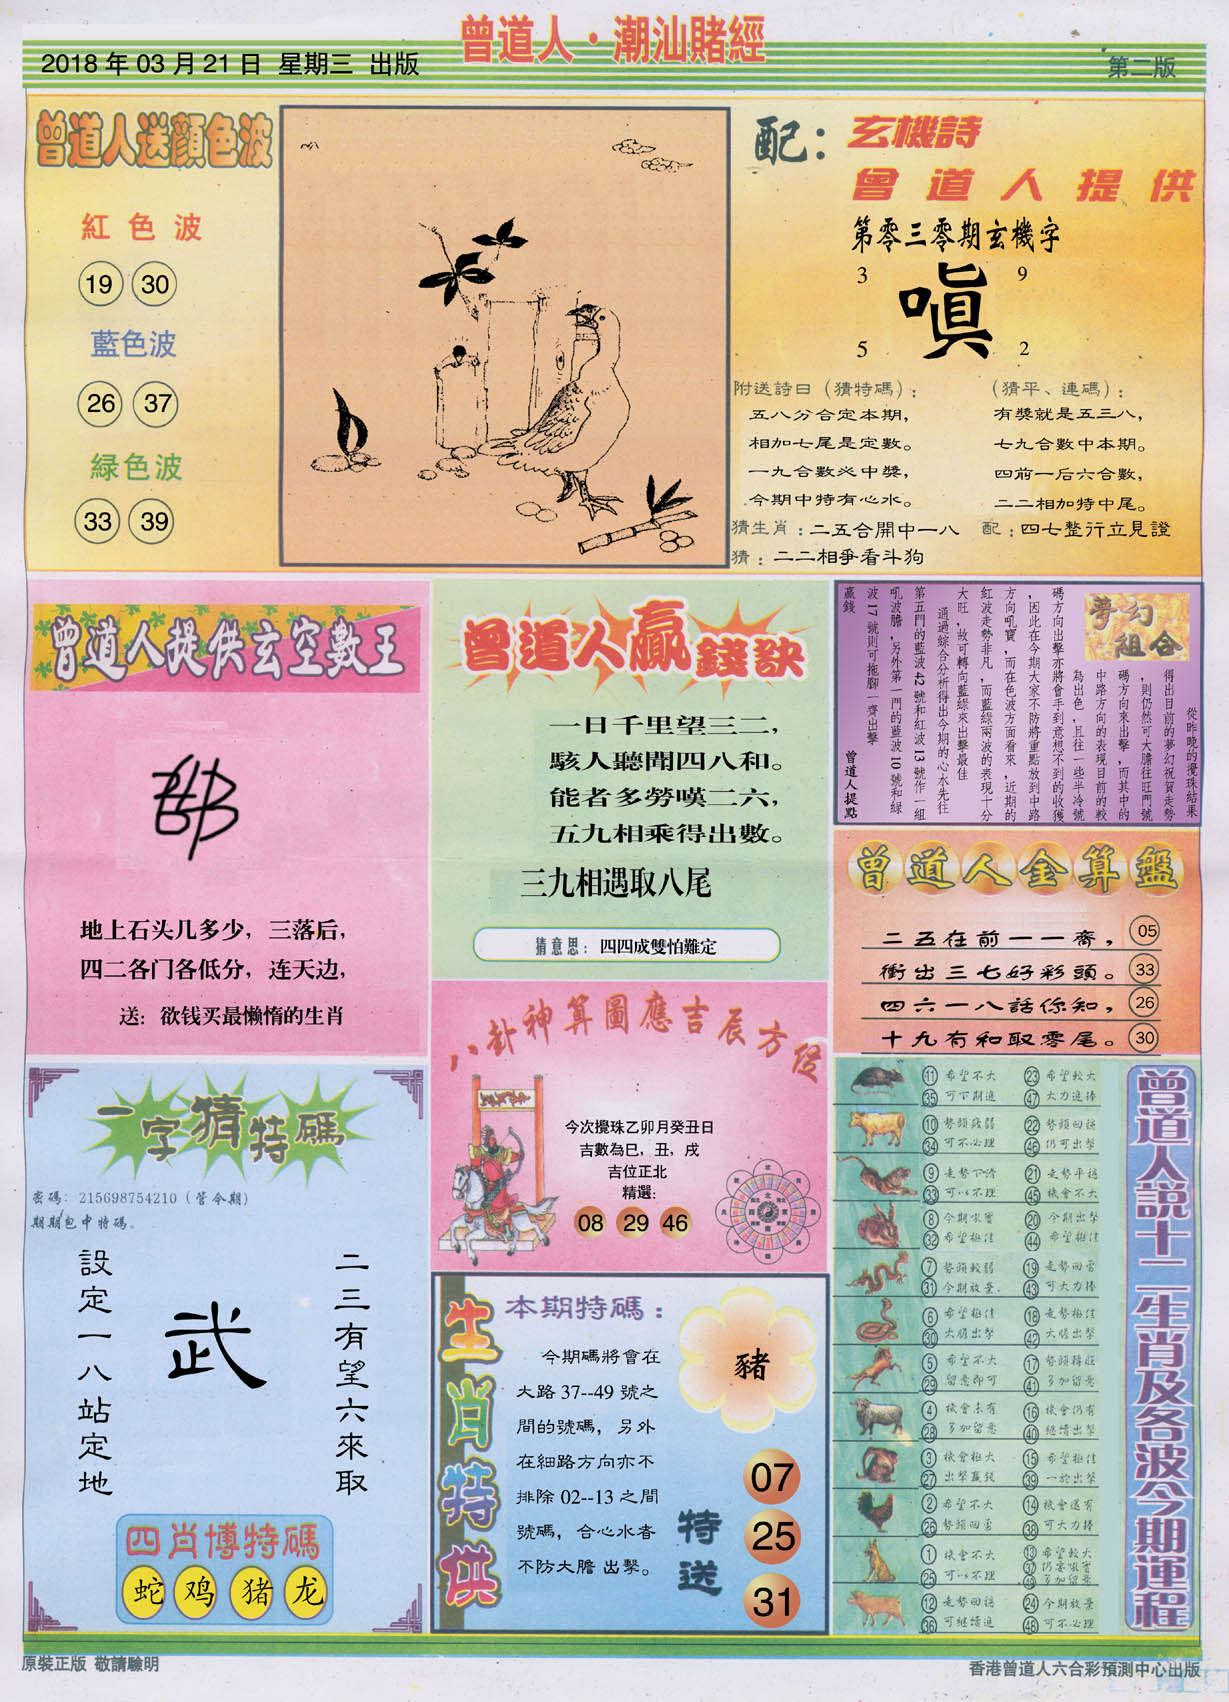 曾道人·潮汕賭經
2018 年 03 月 21 日 星期三 出版
第二版
曾道人送顏色波
紅色波
19 30
藍色波
26 37
緑色波
33 39
配：
玄機詩
曾道人提供
第零三零期玄機字
3 9
嗔
5 2
附送詩曰（猜特碼）：
五八分合定本期，
相加七尾是定數。
一九合數必中獎，
今期中特有心水。
（猜平、連碼）：
有獎就是五三八，
七九合數中本期。
四前一后六合數，
二二相加特中尾。
猜生肖：二五合開中一八
配：四七整行立見證
猜：二二相爭看斗狗
曾道人提供玄空數王
地上石头几多少，三落后，
四二各门各低分，连天边，
送：欲钱买最懒惰的生肖
曾道人贏錢訣
一日千里望三二，
駭人聽聞四八和。
能者多勞嘆二六，
五九相乘得出數。
三九相遇取八尾
猜意思：四四成雙怕難定
夢幻組合
從昨晚的攪珠結果
得出目前的夢幻祝賀走勢
，則仍然可大膽往旺門號
碼方向來出擊，而其中的
中路方向的表現目前的較
為出色，且往一些半冷號
碼方向出擊亦將會手到意想不到的收獲
，因此在今期大家不防將重點放到中路
方向吼寶，而在色波方面看來，近期的
紅波走勢非凡，而藍綠兩波的表現十分
大旺，故可轉向藍綠來出擊最佳
通過綜合分析得出今期的心水先往
第五門的藍波 42 號和紅波 13 號作一組
吼波膽，另外第一門的藍波 10 號和綠
波 17 號則可拖腳一齊出擊
贏錢
曾道人提點
曾道人金算盤
二五在前一一齊， 05
衝出三七好彩頭。 33
四六一八話你知， 26
十九有和取零尾。 30
一字猜特碼
密碼：215698754210（管今期）
期期包中特碼。
二三有望六來取
武
設定一八站定地
四肖博特碼
蛇 鸡 猪 龙
八卦神算圖應吉辰方位
今次攪珠乙卯月癸丑日
吉數為巳，丑，戌
吉位正北
精選：
08 29 46
生肖特供
本期特碼：
今期碼將會在
大路 37--49 號之
間的號碼，另外
在細路方向亦不
排除 02--13 之間
號碼，合心水者
不防大膽 出擊。
豬
特送
07
25
31
曾道人說十二生肖及各波今期運程
11 希望不大 23 希望較大
35 可下期進 47 大力進捧
10 勢頭殘弱 22 勢頭回穩
34 可不必理 46 仍可出擊
9 走勢下滑 21 走勢平穩
33 可以不理 45 機會不大
8 今期吼寶 20 今期出擊
32 希望極佳 44 希望極佳
7 勢頭較弱 19 走勢回勇
31 今期放棄 43 可大力捧
6 希望極佳 18 走勢極佳
30 大膽出擊 42 大膽出擊
5 希望不大 17 勢頭轉旺
29 留意即可 41 多加留意
4 機會未有 16 機會仍有
28 多加留意 40 繼續出擊
3 機會極大 15 希望極佳
27 出擊贏錢 39 一於出擊
2 希望不大 14 機會還有
26 勢頭回勇 38 可大力捧
1 機會不大 13 希望較大
25 可以不理 37 仍要吼寶
49 多加留意
12 走勢回穩 24 今期放棄
36 可繼續進 48 可不必理
原裝正版 敬請驗明
香港曾道人六合彩預測中心出版